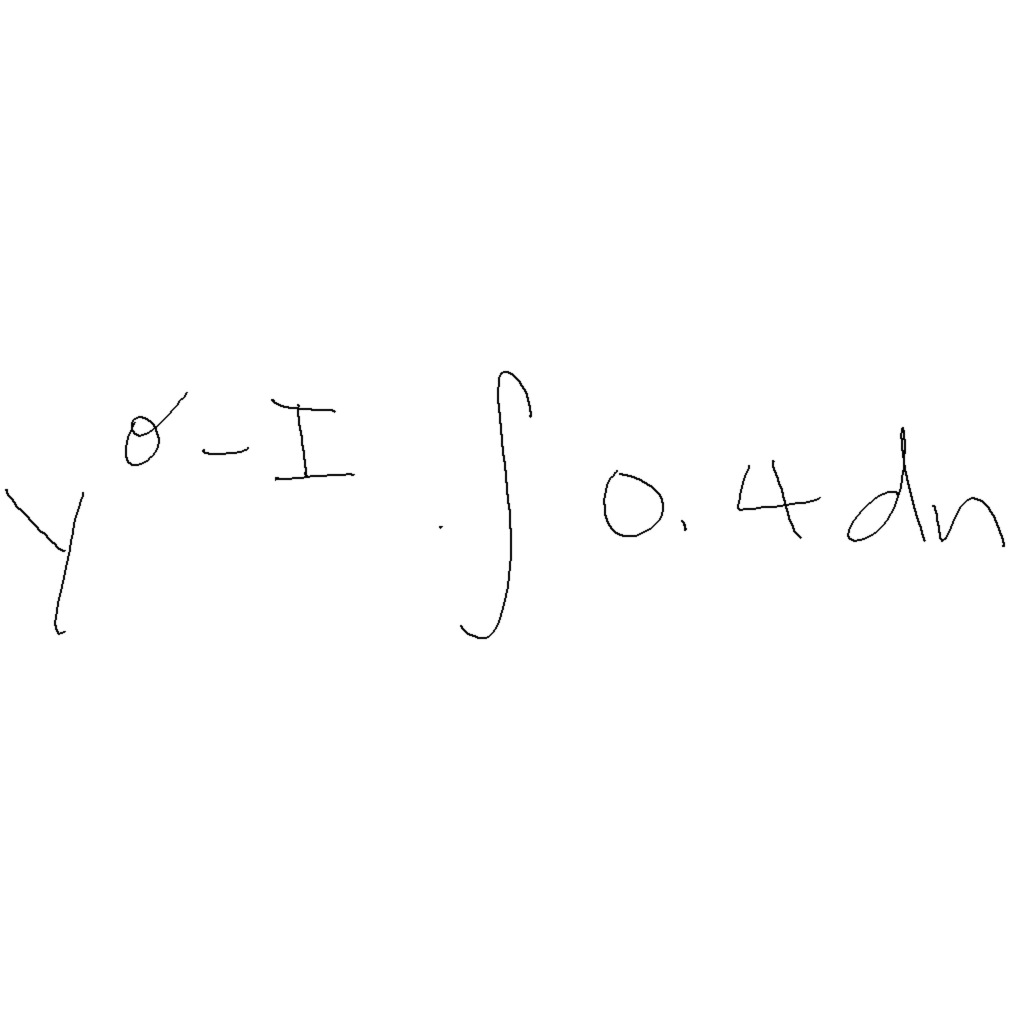 y^{σ-I} · ∫ 0.4 dn